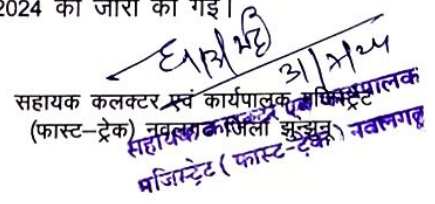 2024 को जारी की गई।
सहायक कलक्टर एवं कार्यपालक मजिस्ट्रेट
(फास्ट–ट्रेक) नवलगढ जिला झुन्झुनू
सहायक कलक्टर एवं कार्यपालक
मजिस्ट्रेट ( फास्ट-ट्रेक ) नवलगढ़